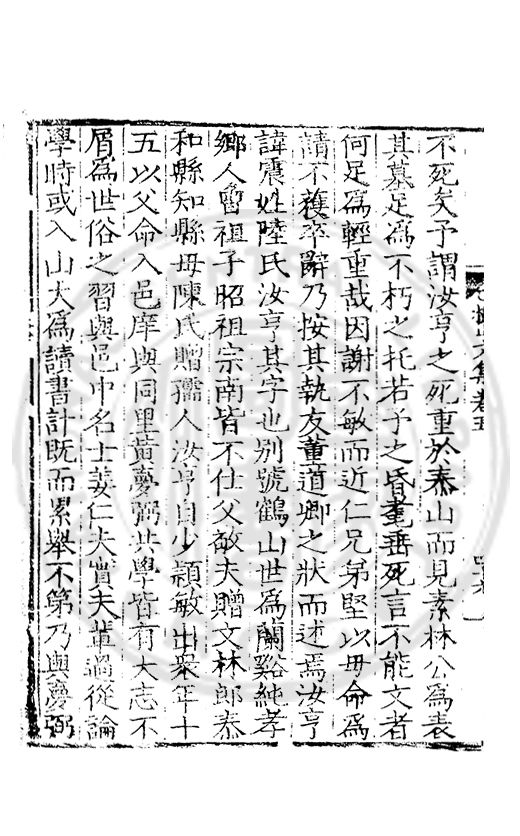 不死矣予謂汝亨之死重於泰山而見素林公爲表
其墓足爲不朽之托若予之昏耄垂死言不能文者
何足爲輕重哉因謝不敏而近仁兄弟堅以毋命爲
請不獲卒辭乃按其執友董道卿之狀而述焉汝亨
諱震姓陸氏汝亨其字也別號鶴山世爲蘭谿純孝
鄉人曾祖子昭祖宗南皆不仕父敏夫贈文林郎泰
和縣知縣毋陳氏贈孺人汝亨自少穎敏出衆年十
五以父命入邑庠與同里黃夢弼共學皆有大志不
屑爲世俗之習與邑中名士姜仁夫實夫輩過從論
學時或入山大爲讀書計既而累舉不第乃與夢弼
文集卷五